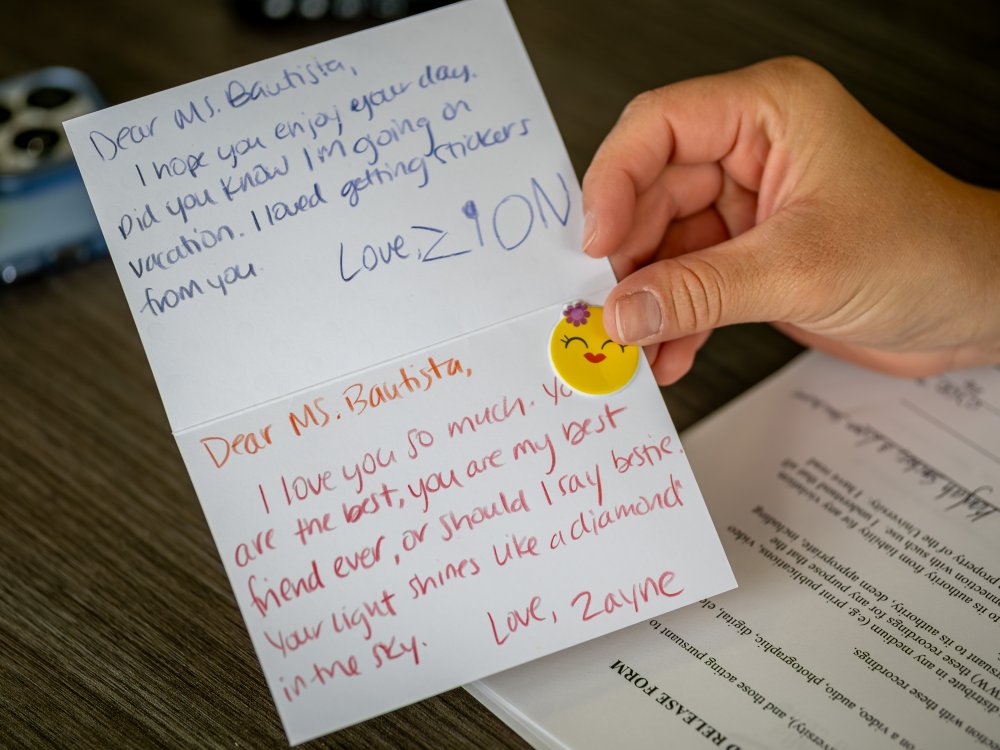 Dear Ms. Bautista,
I hope you enjoy your day.
Did you know I'm going on
vacation. I loved getting stickers
from you.
Love, ZION
Dear Ms. Bautista,
I love you so much. Yo
are the best, you are my best
friend ever, or should I say bestie.
Your light shines like a diamond
in the sky.
Love, Zayne
D RELEASE FORM
ersity), and those acting pursuant to
on a video, audio, photographic, digital, el
ction with these recordings.
distribute in any medium (e.g. print publications, video
W) these recordings for any purpose that the
to its authority, deem appropriate, including
to its authority from liability for any violation
nnection with such use. I understand that all
property of the University. I have read